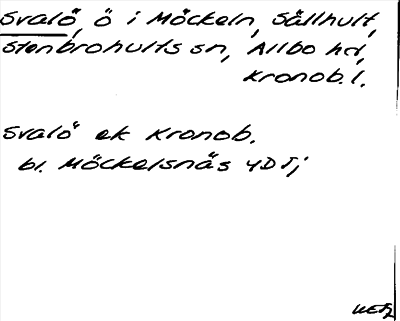 Svalö, ö i Möckeln, Sällhult,
Stenbrohults sn, Allbo hd,
Kronob. l.
Svalö ek Kronob.
bl. Möckelsnäs 4D